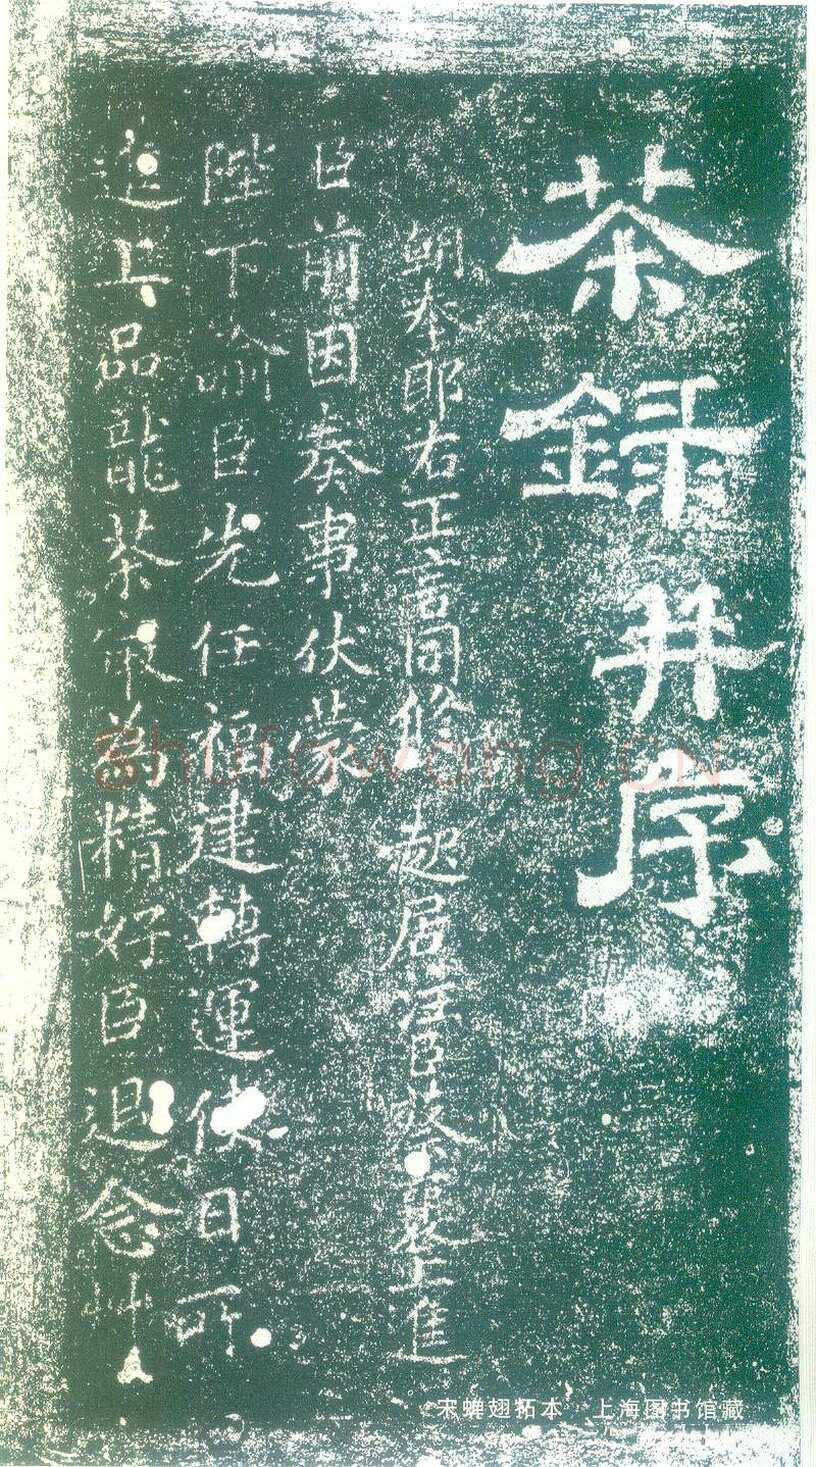 茶録并序
朝奉郎右正言同修起居注臣蔡襄上進
臣前因奏事伏蒙
陛下諭臣先任福建轉運使日所
進上品龍茶最為精好臣退念艸
shufawang.CN
宋蝉翅拓本 上海图书馆藏